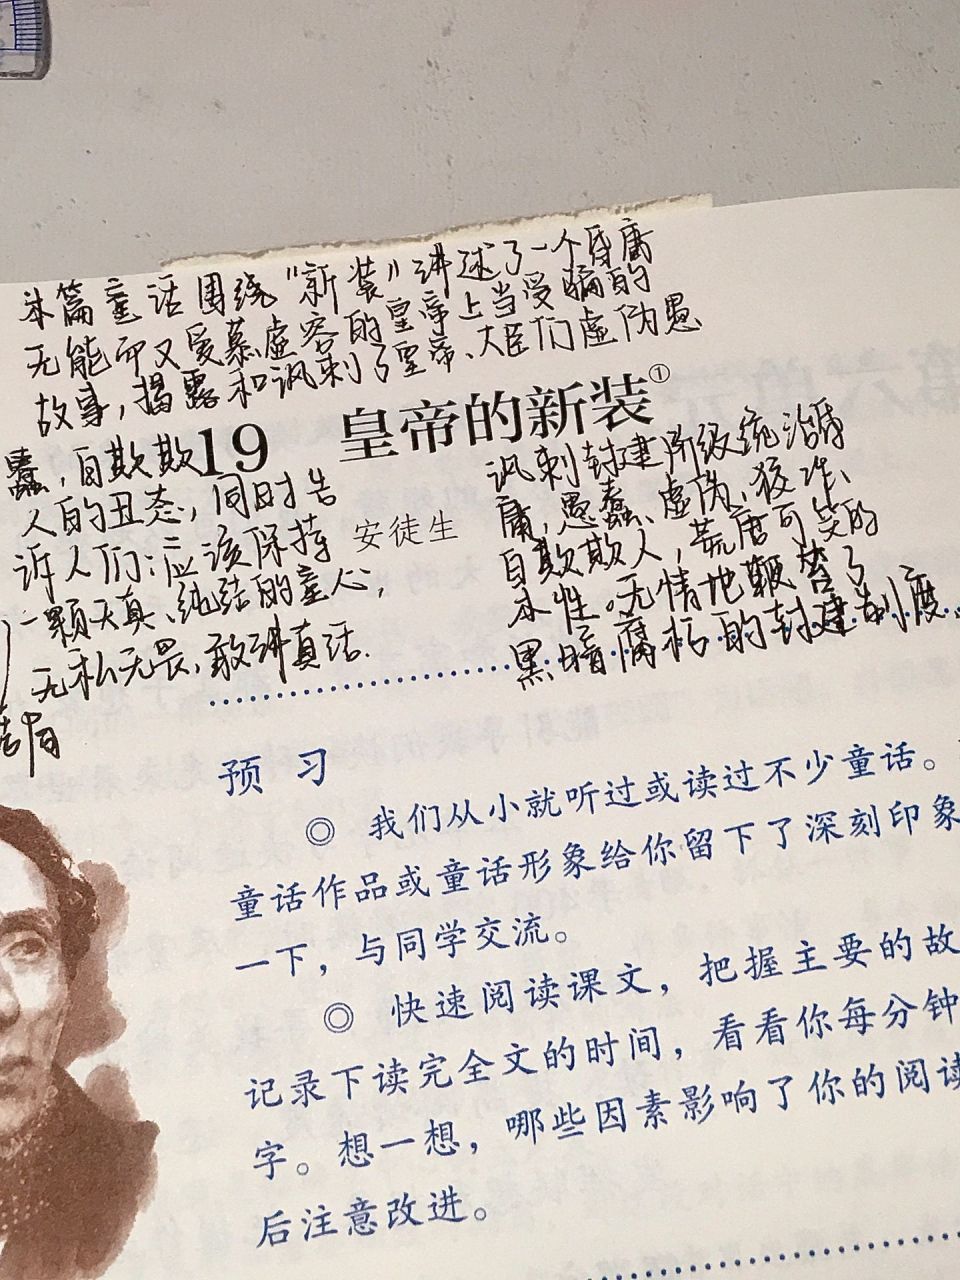 本篇童话围绕“新装”讲述了一个昏庸
无能而又爱慕虚容的皇帝上当受骗的
故事，揭露和讽刺了皇帝、大臣们虚伪愚
蠢，自欺欺
人的丑态，同时告
诉人们：应该保持
一颗天真、纯洁的童心；
无私无畏，敢讲真话.
19 皇帝的新装①
安徒生
讽刺封建阶级统治昏
庸，愚蠢、虚伪、狡诈、
自欺欺人，荒唐可笑的
本性。无情地鞭笞了
黑暗腐朽的封建制度。
预 习
◎ 我们从小就听过或读过不少童话。
童话作品或童话形象给你留下了深刻印象
一下，与同学交流。
◎ 快速阅读课文，把握主要的故
记录下读完全文的时间，看看你每分钟
字。想一想，哪些因素影响了你的阅读
后注意改进。